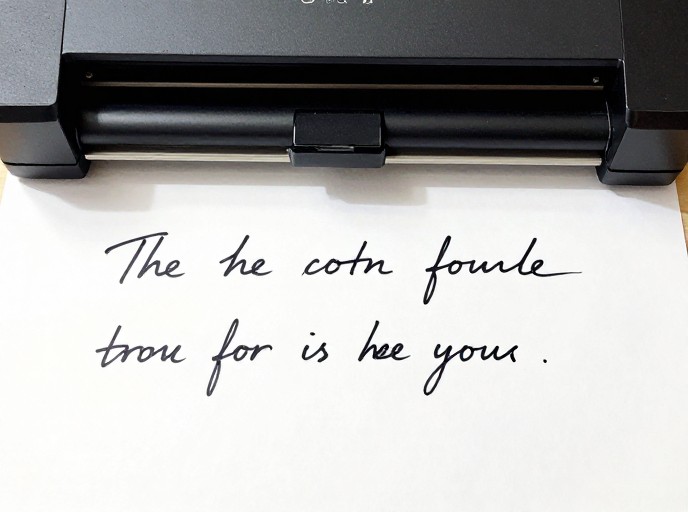 The he cotn fourle
trou for is hee your .